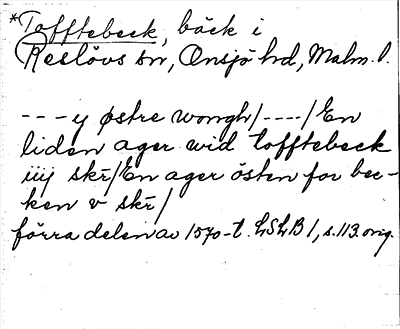 *Tofftebeck, bäck i
Reslövs sn, Onsjö hd, Malm. l.
---y østre wongh/----/En
liden ager wid tofftebeck
iiij skr/En ager östen for bec-
ken v skr/
förra delen av 1570-t. LSLB 1, s. 113. orig.